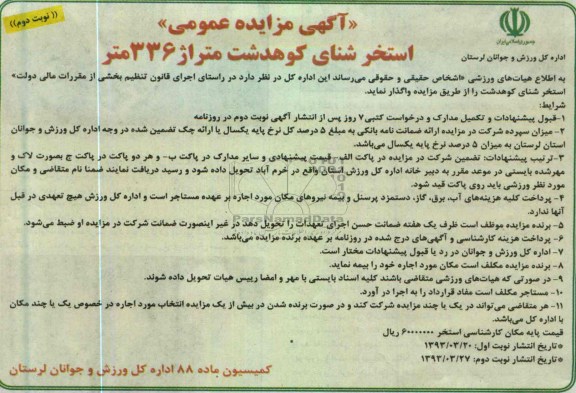 (( نوبت دوم))
«آگهی مزایده عمومی»
استخر شنای کوهدشت متراژ ۳۳۶متر
جمهوری اسلامی ایران
اداره کل ورزش و جوانان لرستان
به اطلاع هیات‌های ورزشی «اشخاص حقیقی و حقوقی می‌رساند این اداره کل در نظر دارد در راستای اجرای قانون تنظیم بخشی از مقررات مالی دولت»
استخر شنای کوهدشت را از طریق مزایده واگذار نماید.
شرایط:
۱-قبول پیشنهادات و تکمیل مدارک و درخواست کتبی۷ روز پس از انتشار آگهی نوبت دوم در روزنامه
۲-میزان سپرده شرکت در مزایده ارائه ضمانت نامه بانکی به مبلغ ۵ درصد کل نرخ پایه یکسال یا ارائه چک تضمین شده در وجه اداره کل ورزش و جوانان
استان لرستان به میزان ۵ درصد نرخ پایه یکسال می‌باشد.
۳-ترتیب پیشنهادات: تضمین شرکت در مزایده در پاکت الف- قیمت پیشنهادی و سایر مدارک در پاکت ب- و هر دو پاکت در پاکت ج بصورت لاک و
مهرشده بایستی در موعد مقرر به دبیر خانه اداره کل ورزش استان واقع در خرم آباد تحویل داده شود و رسید دریافت نمایند ضمنا نام متقاضی و مکان
مورد نظر ورزشی باید روی پاکت قید شود.
۴- پرداخت کلیه هزینه‌های آب، برق، گاز، دستمزد پرسنل و بیمه نیروهای مکان مورد اجاره بر عهده مستاجر است و اداره کل ورزش هیچ تعهدی در قبل
آنها ندارد.
۵- برنده مزایده موظف است ظرف یک هفته ضمانت حسن اجرای تعهدات را تحویل دهد در غیر اینصورت ضمانت شرکت در مزایده او ضبط می‌شود.
۶- پرداخت هزینه کارشناسی و آگهی‌های درج شده در روزنامه بر عهده برنده مزایده می‌باشد.
۷- اداره کل ورزش و جوانان در رد یا قبول پیشنهادات مختار است.
۸- برنده مزایده مکلف است مکان مورد اجاره خود را بیمه نماید.
۹- در صورتی که هیات‌های ورزشی متقاضی باشند کلیه اسناد بایستی با مهر و امضا رییس هیات تحویل داده شوند.
۱۰- مستاجر مکلف است مفاد قرارداد را به اجرا در آورد.
۱۱- هر متقاضی می‌تواند در یک یا چند مزایده شرکت کند و در صورت برنده شدن در بیش از یک مزایده انتخاب مورد اجاره در خصوص یک یا چند مکان
با اداره کل می‌باشد.
قیمت پایه مکان کارشناسی استخر ۶۰۰۰۰۰۰۰ ریال
*تاریخ انتشار نوبت اول: ۱۳۹۳/۰۳/۲۰
*تاریخ انتشار نوبت دوم: ۱۳۹۳/۰۳/۲۷
کمیسیون ماده ۸۸ اداره کل ورزش و جوانان لرستان
ParsNamadData